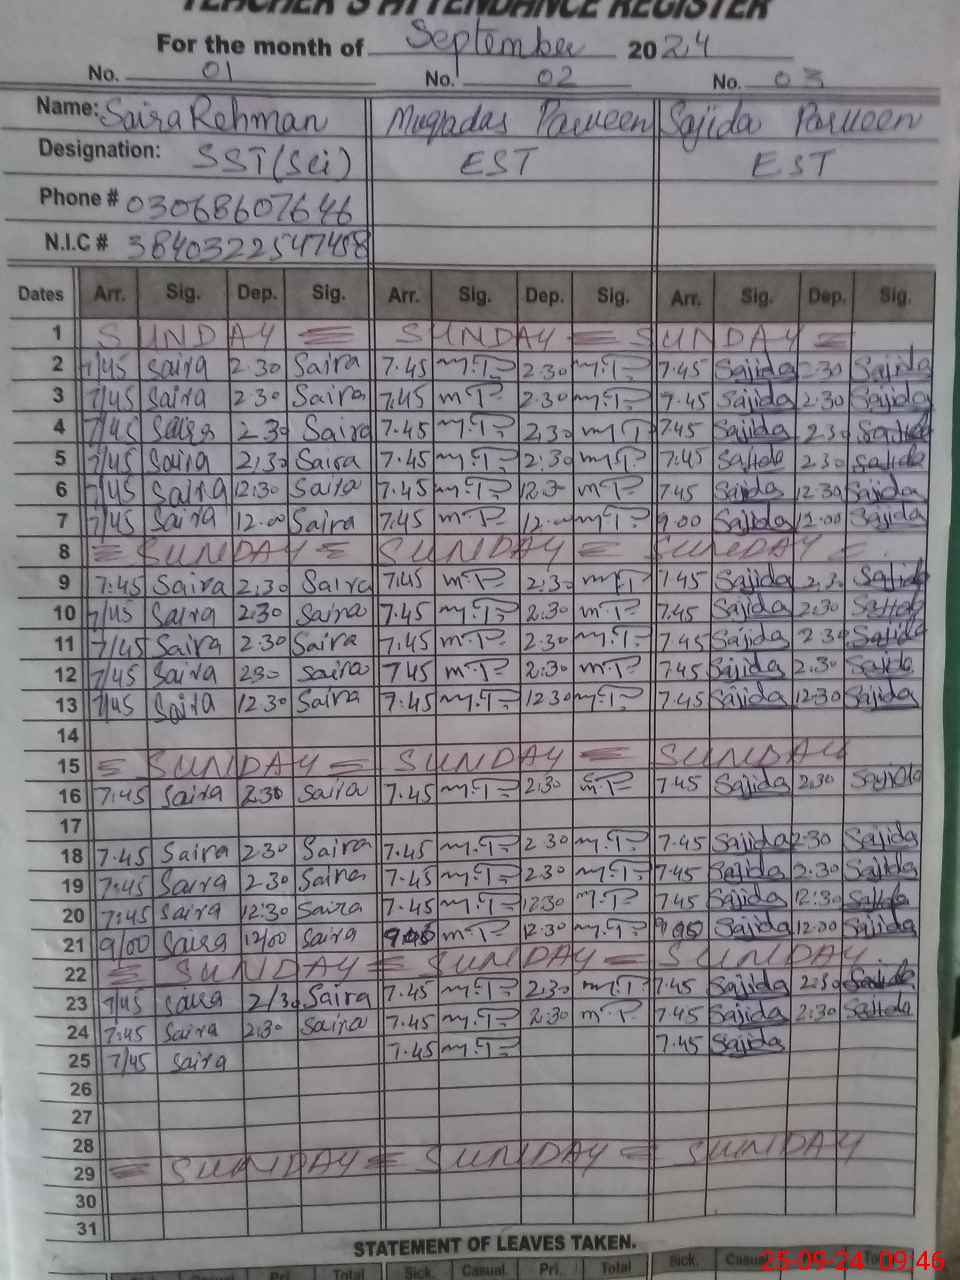 TEACHER'S ATTENDANCE REGISTER
For the month of September 2024
No. 01 No. 02 No. 03
Name: Saira Rehman Muqadas Parveen Sajida Parveen
Designation: SST(Sci) EST EST
Phone # 03068607646
N.I.C # 3840322547458
Dates Arr. Sig. Dep. Sig. Arr. Sig. Dep. Sig. Arr. Sig. Dep. Sig.
1 SUNDAY = SUNDAY = SUNDAY =
2 7/45 Saira 2.30 Saira 7.45 m.P 2.30 m.P 7.45 Sajida 2.30 Sajida
3 7/45 Saira 2.30 Saira 7.45 m.P 2.30 m.P 7.45 Sajida 2.30 Sajida
4 7/45 Saira 2.30 Saira 7.45 m.P 2.30 m.P 7.45 Sajida 2.30 Sajida
5 7/45 Saira 2.30 Saira 7.45 m.P 2:30 m.P 7.45 Sajida 2.30 Sajida
6 7/45 Saira 12:30 Saira 7.45 m.P m.P 7.45 Sajida 12.30 Sajida
7 7/45 Saira 12.00 Saira 7.45 m.P 12.00 m.P 9.00 Sajida 12.00 Sajida
8 = SUNDAY = SUNDAY = SUNDAY
9 7:45 Saira 2.30 Saira 7.45 m.P 2.30 m.P 7.45 Sajida 2.30 Sajida
10 7/45 Saira 2.30 Saira 7.45 m.P 2.30 m.P 7.45 Sajida 2.30 Sajida
11 7/45 Saira 2.30 Saira 7.45 m.P 2.30 m.P 7.45 Sajida 2.30 Sajida
12 7/45 Saira 230 Saira 745 m.P 2.30 m.P 7.45 Sajida 2.30 Sajida
13 7/45 Saira 12.30 Saira 7.45 m.P 12.30 m.P 7.45 Sajida 12.30 Sajida
14
15 = SUNDAY = SUNDAY = SUNDAY
16 7:45 Saira 2.30 Saira 7.45 m.P 2:30 m.P 7.45 Sajida 2.30 Sajida
17
18 7.45 Saira 2.30 Saira 7.45 m.P 2.30 m.P 7.45 Sajida 2.30 Sajida
19 7:45 Saira 2.30 Saira 7.45 m.P 2.30 m.P 7.45 Sajida 2.30 Sajida
20 7:45 Saira 12:30 Saira 7.45 m.P 12.30 m.P 7.45 Sajida 12:30 Sajida
21 9/00 Saira 12/00 Saira m.P 12.30 m.P Sajida 12.00 Sajida
22 = SUNDAY = SUNDAY = SUNDAY
23 7/45 Saira 2/30 Saira 7.45 m.P 2.30 m.P 7.45 Sajida 2.30 Sajida
24 7:45 Saira 2:30 Saira 7.45 m.P 2:30 m.P 7.45 Sajida 2:30 Sajida
25 7/45 Saira 7.45 m.P 7.45 Sajida
26
27
28
29 = SUNDAY = SUNDAY = SUNDAY
30
31
STATEMENT OF LEAVES TAKEN.
Pri. Total Sick. Casual. Pri. Total Sick. Casual Total
25-09-24 09:46